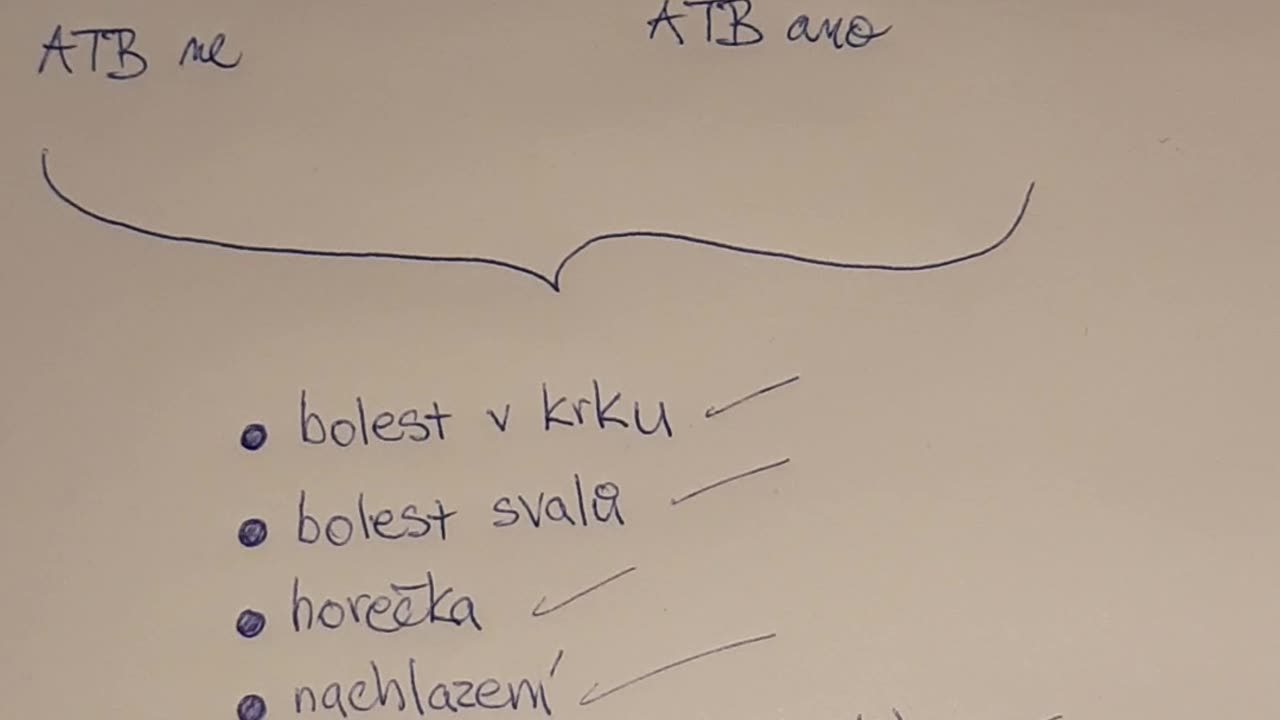 ATB ne
ATB ano
bolest v krku
bolest svalů
horečka
nachlazení